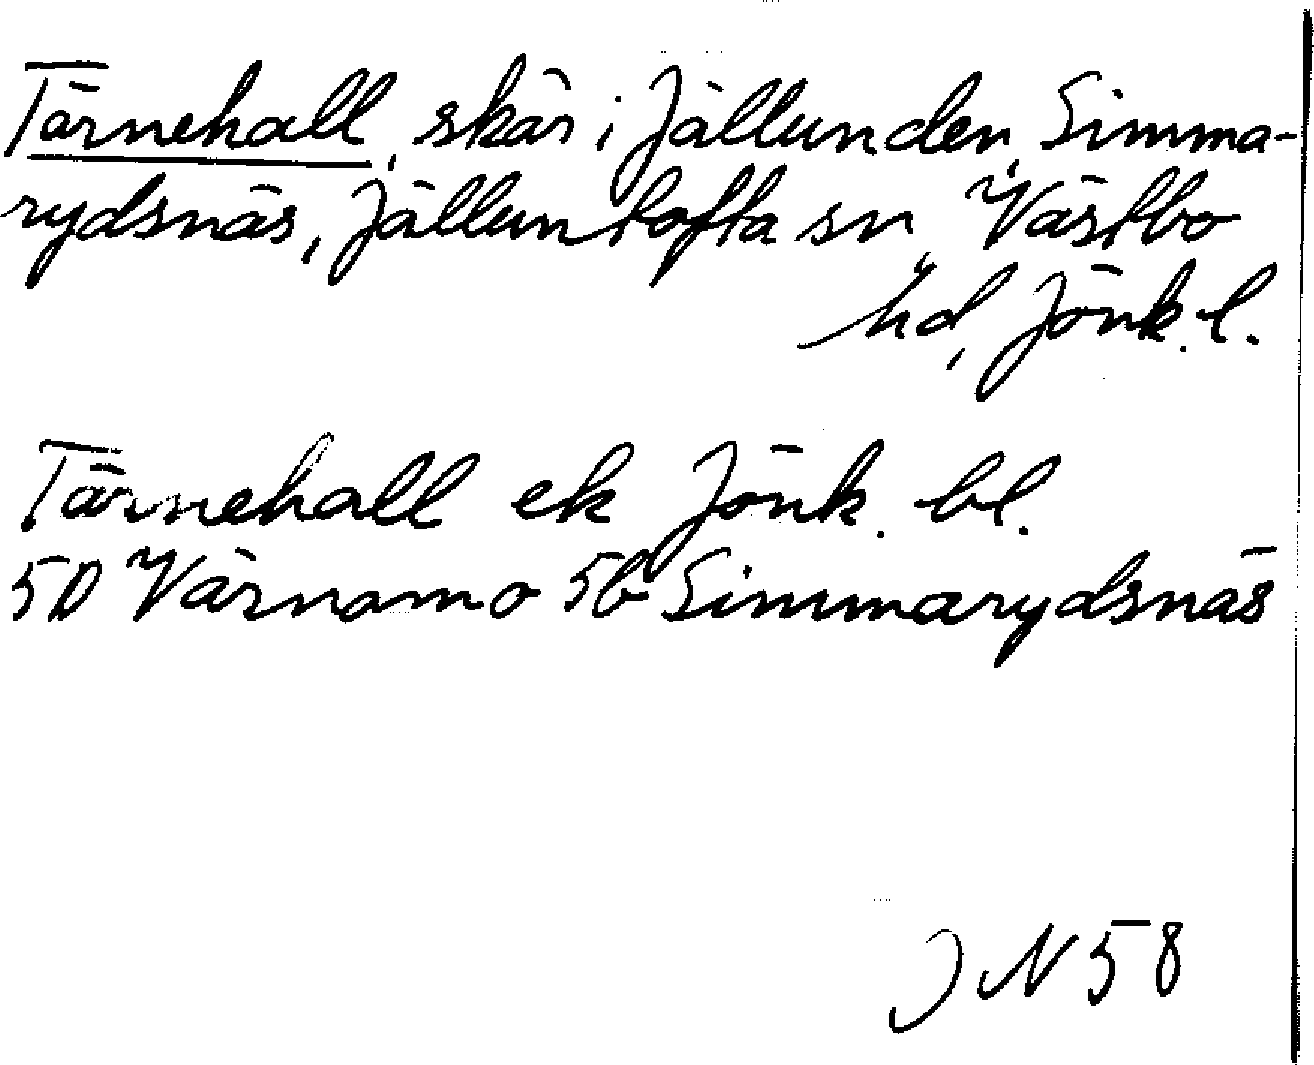 Tärnehall, skär i Jällunden, Simma-
rydsnäs, Jälluntofta sn, Västbo
hd, Jönk. l.
Tärnehall ek Jönk. bl.
5D Värnamo 5b Simmarydsnäs
JN 58